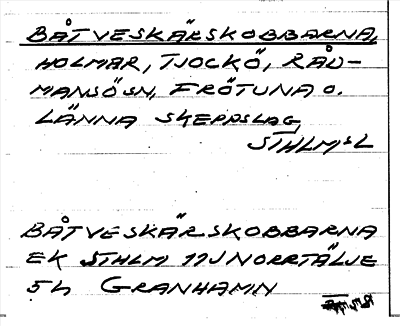 BÅTVESKÄRSKOBBARNA,
HOLMAR, TJOCKÖ, RÅD-
MANSÖ SN, FRÖTUNA O.
LÄNNA SKEPPSLAG,
STHLMS L
BÅTVESKÄRSKOBBARNA
EK STHLM 11J NORRTÄLJE
5h GRANHAMN